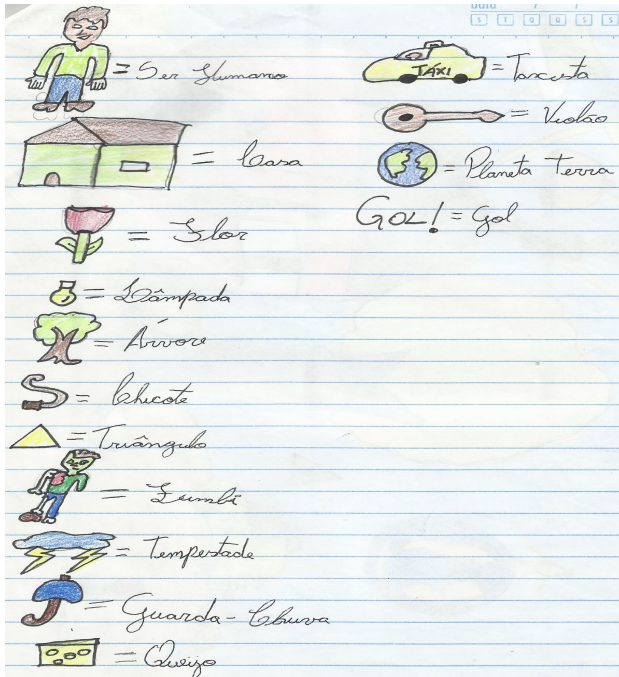 S T Q Q S S
= Ser Humano
= Casa
= Flor
= Lâmpada
= Árvore
= Chicote
= Triângulo
= Zumbi
= Tempestade
= Guarda-Chuva
= Queijo
TÁXI = Taxista
= Violão
= Planeta Terra
GOL! = Gol